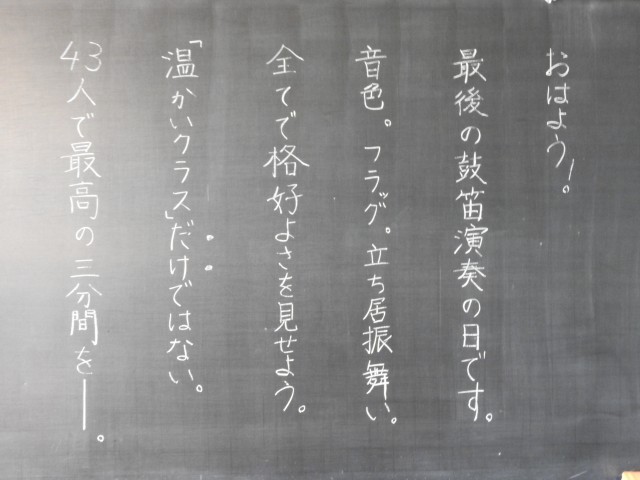 おはよう!。
最後の鼓笛演奏の日です。
音色。フラッグ。立ち居振舞い。
全てで格好よさを見せよう。
「温かいクラス」だけではない。
43人で最高の三分間を──。